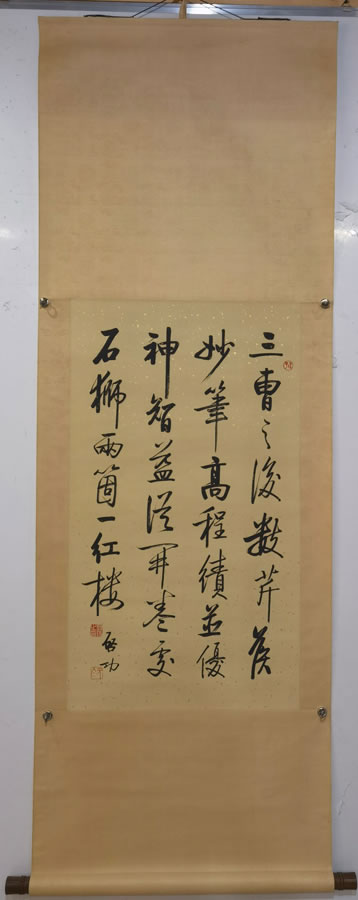 三曹之後數芹侯
妙筆高程績並優
神智益從開卷處
石獅兩箇一紅樓
啓功